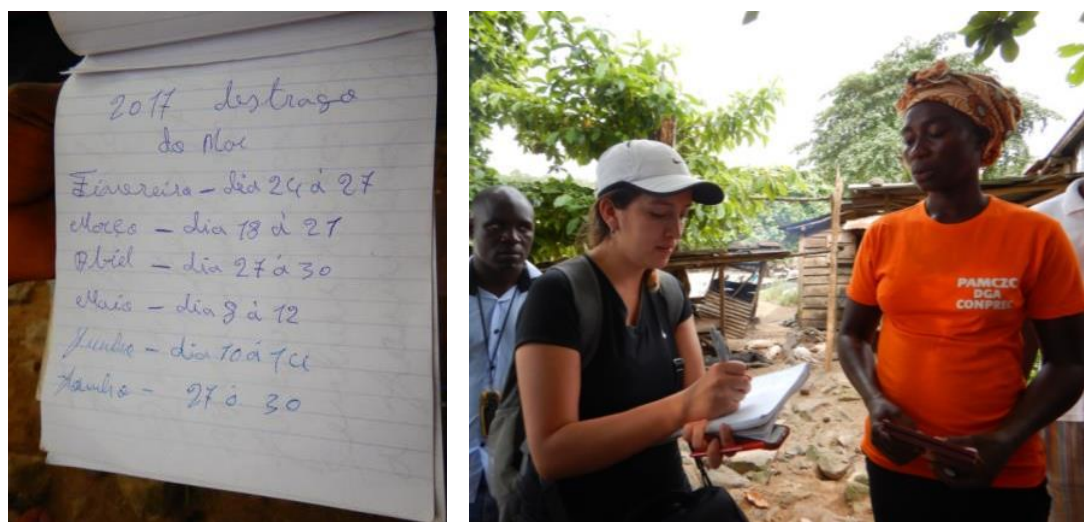 2017 destraço
do Mar
Fivereiro - dia 24 à 27
Março - dia 18 à 27
Abiel - dia 27 à 30
Maio - dia 8 à 12
Junho - dia 10 à 14
- 27 à 30
PAMCZC
DGA
CONPREC